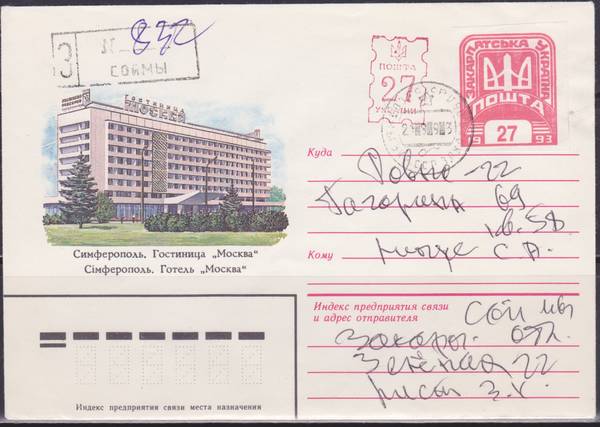 З №-842
СОЙМЫ
ПОШТА
27
УКРАЇНИ
ЗАКАРПАТСЬКА УКРАЇНА
ПОШТА
19 27 93
ГОСТИНИЦА
МОСКВА
Симферополь. Гостиница „Москва“
Сімферополь. Готель „Москва“
Куда Ровно-22
Гагарина 69
кв. 58
Кому С. А.
Индекс предприятия связи
и адрес отправителя
Соймы
Закарп. обл.
Зелёная 22
З. У.
Индекс предприятия связи места назначения